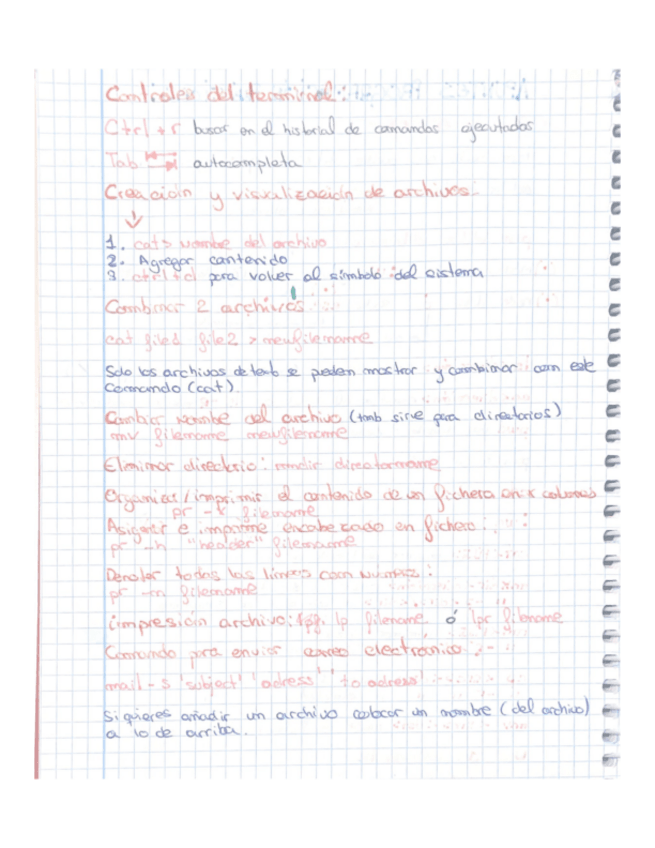 Controles del terminal:
Ctrl + r buscar en el historial de comandos ejecutados
Tab autocompleta
Creación y visualización de archivos
↓
1. cat > nombre del archivo
2. Agregar contenido
3. ctrl + d para volver al símbolo del sistema
Combinar 2 archivos:
cat file1 file2 > newfilename
Solo los archivos de texto se pueden mostrar y combinar con este
Comando (cat)
Cambiar nombre del archivo (tamb sirve para directorios)
mv filename newfilename
Eliminar directorio: rmdir directorname
Organizar / imprimir el contenido de un fichero en x columnas
pr -x filename
Asignar e imprime encabezado en fichero:
pr -h "header" filename
Denotar todas las líneas con números:
pr -n filename
impresión archivo: lp filename ó lpr filename
Comando para enviar correo electrónico:
mail -s 'subject' 'adress' 'to adress'
Si quieres añadir un archivo colocar un nombre (del archivo)
a lo de arriba.